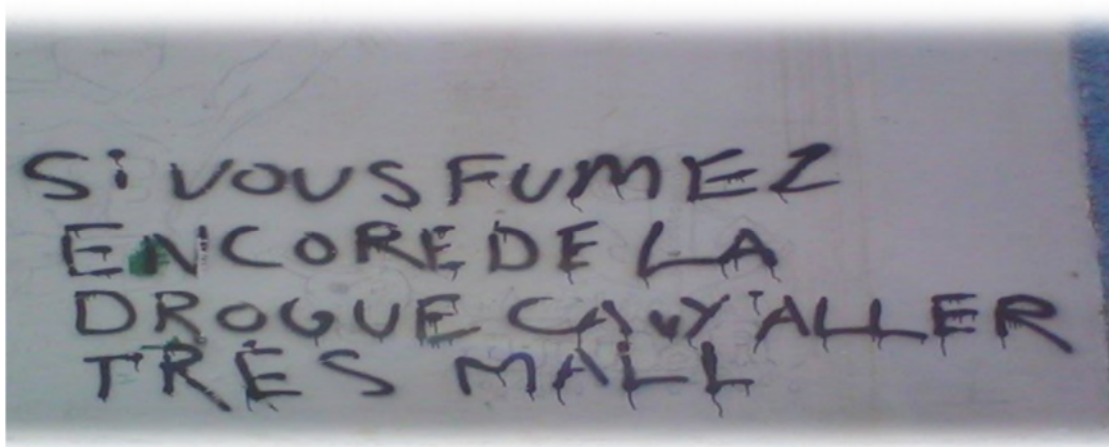 Si VOUS FUMEZ
ENCORE DE LA
DROGUE CA VY ALLER
TRES MALL